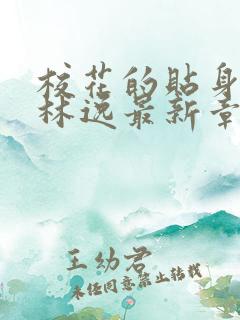 校花的贴身
林逸最新章
王幼君
未经同意禁止转载